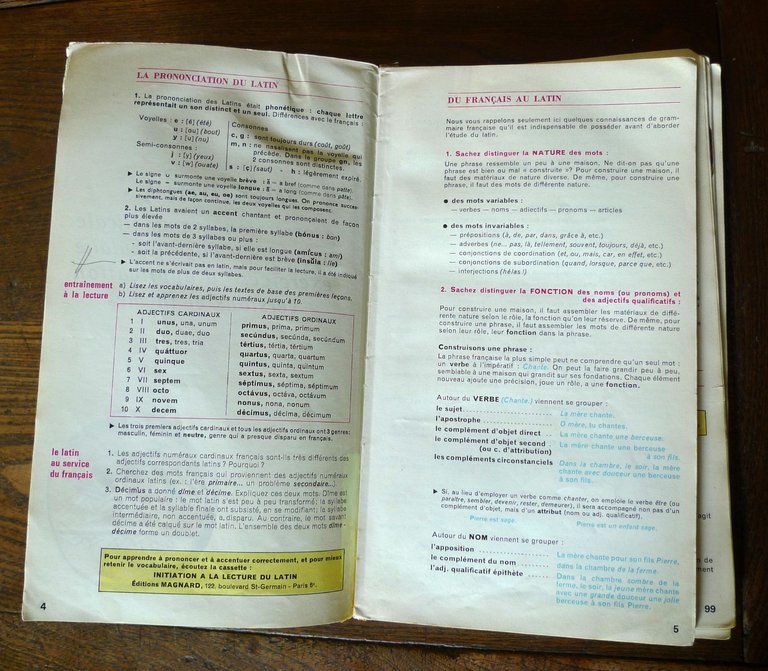 LA PRONONCIATION DU LATIN
1. La prononciation des Latins était phonétique : chaque lettre
représentait un son distinct et un seul. Différences avec le français :
Voyelles : e : [é] (été)
u : [ou] (bout)
y : [u] (nu)
Semi-consonnes :
j : [y] (yeux)
v : [w] (ouate)
Consonnes
c, g : sont toujours durs (coût, goût)
m, n : ne nasalisent pas la voyelle qui
précède. Dans le groupe gn, les
2 consonnes sont distinctes.
s : [ç] (saut) - h : légèrement expiré.
▶ Le signe ᴗ surmonte une voyelle brève : ă — a bref (comme dans patte).
Le signe – surmonte une voyelle longue : ā — a long (comme dans pâte).
▶ Les diphtongues (ae, au, eu, oe) sont toujours longues. On prononce succes-
sivement, mais de façon continue, les deux voyelles qui les composent.
2. Les Latins avaient un accent chantant et prononçaient de façon
plus élevée
— dans les mots de 2 syllabes, la première syllabe (bónus : bon)
— dans les mots de 3 syllabes ou plus :
- soit l'avant-dernière syllabe, si elle est longue (amícus : ami)
- soit la précédente, si l'avant-dernière est brève (ínsŭla : île)
▶ L'accent ne s'écrivait pas en latin, mais pour faciliter la lecture, il a été indiqué
sur les mots de plus de deux syllabes.
entraînement
à la lecture
a) Lisez les vocabulaires, puis les textes de base des premières leçons.
b) Lisez et apprenez les adjectifs numéraux jusqu'à 10.
ADJECTIFS CARDINAUX
1 I unus, una, unum
2 II duo, duae, duo
3 III tres, tres, tria
4 IV quáttuor
5 V quinque
6 VI sex
7 VII septem
8 VIII octo
9 IX novem
10 X decem
ADJECTIFS ORDINAUX
primus, prima, primum
secúndus, secúnda, secúndum
tértius, tértia, tértium
quartus, quarta, quartum
quintus, quinta, quintum
sextus, sexta, sextum
séptimus, séptima, séptimum
octávus, octáva, octávum
nonus, nona, nonum
décimus, décima, décimum
▶ Les trois premiers adjectifs cardinaux et tous les adjectifs ordinaux ont 3 genres:
masculin, féminin et neutre, genre qui a presque disparu en français.
le latin
au service
du français
1. Les adjectifs numéraux cardinaux français sont-ils très différents des
adjectifs correspondants latins ? Pourquoi ?
2. Cherchez des mots français qui proviennent des adjectifs numéraux
ordinaux latins (ex. : l'ère primaire... un problème secondaire...)
3. Décimus a donné dîme et décime. Expliquez ces deux mots. Dîme est
un mot populaire : le mot latin s'est peu à peu transformé; la syllabe
accentuée et la syllabe finale ont subsisté, en se modifiant; la syllabe
intermédiaire, non accentuée, a disparu. Au contraire, le mot savant
décima a été calqué sur le mot latin. L'ensemble des deux mots dîme -
décime forme un doublet.
Pour apprendre à prononcer et à accentuer correctement, et pour mieux
retenir le vocabulaire, écoutez la cassette :
INITIATION A LA LECTURE DU LATIN
Éditions MAGNARD, 122, boulevard St-Germain - Paris 6e.
4
DU FRANÇAIS AU LATIN
Nous vous rappelons seulement ici quelques connaissances de gram-
maire française qu'il est indispensable de posséder avant d'aborder
l'étude du latin.
1. Sachez distinguer la NATURE des mots :
Une phrase ressemble un peu à une maison. Ne dit-on pas qu'une
phrase est bien ou mal « construite »? Pour construire une maison, il
faut des matériaux de nature diverse. De même, pour construire une
phrase, il faut des mots de différente nature.
● des mots variables :
— verbes — noms — adjectifs — pronoms — articles
● des mots invariables :
— prépositions (à, de, par, dans, grâce à, etc.)
— adverbes (ne... pas, là, tellement, souvent, toujours, déjà, etc.)
— conjonctions de coordination (et, ou, mais, car, en effet, etc.)
— conjonctions de subordination (quand, lorsque, parce que, etc.)
— interjections (hélas!)
2. Sachez distinguer la FONCTION des noms (ou pronoms) et
des adjectifs qualificatifs :
Pour construire une maison, il faut assembler les matériaux de diffé-
rente nature selon le rôle, la fonction qu'on leur réserve. De même, pour
construire une phrase, il faut assembler les mots de différente nature
selon leur rôle, leur fonction dans la phrase.
Construisons une phrase :
La phrase française la plus simple peut ne comprendre qu'un seul mot :
un verbe à l'impératif : Chante. On peut la faire grandir peu à peu,
semblable à une maison qui grandit sur ses fondations. Chaque élément
nouveau ajoute une précision, joue un rôle, a une fonction.
Autour du VERBE (Chante.) viennent se grouper :
le sujet .................... La mère chante.
l'apostrophe .................... O mère, tu chantes.
le complément d'objet direct .. La mère chante une berceuse.
le complément d'objet second La mère chante une berceuse
(ou c. d'attribution) à son fils.
les compléments circonstanciels Dans la chambre, le soir, la mère
chante avec douceur une berceuse
à son fils.
▶ Si, au lieu d'employer un verbe comme chanter, on emploie le verbe être (ou
paraître, sembler, devenir, rester, demeurer), il sera accompagné non pas d'un
complément d'objet, mais d'un attribut (nom ou adj. qualificatif).
Pierre est sage. Pierre est un enfant sage.
Autour du NOM viennent se grouper :
l'apposition .................... La mère chante pour son fils Pierre,
le complément du nom ........ dans la chambre de la ferme.
l'adj. qualificatif épithète ...... Dans la chambre sombre de la
ferme, le soir, la jeune mère chante
avec une grande douceur une jolie
berceuse à son fils Pierre.
5
agit
on de
ment
99